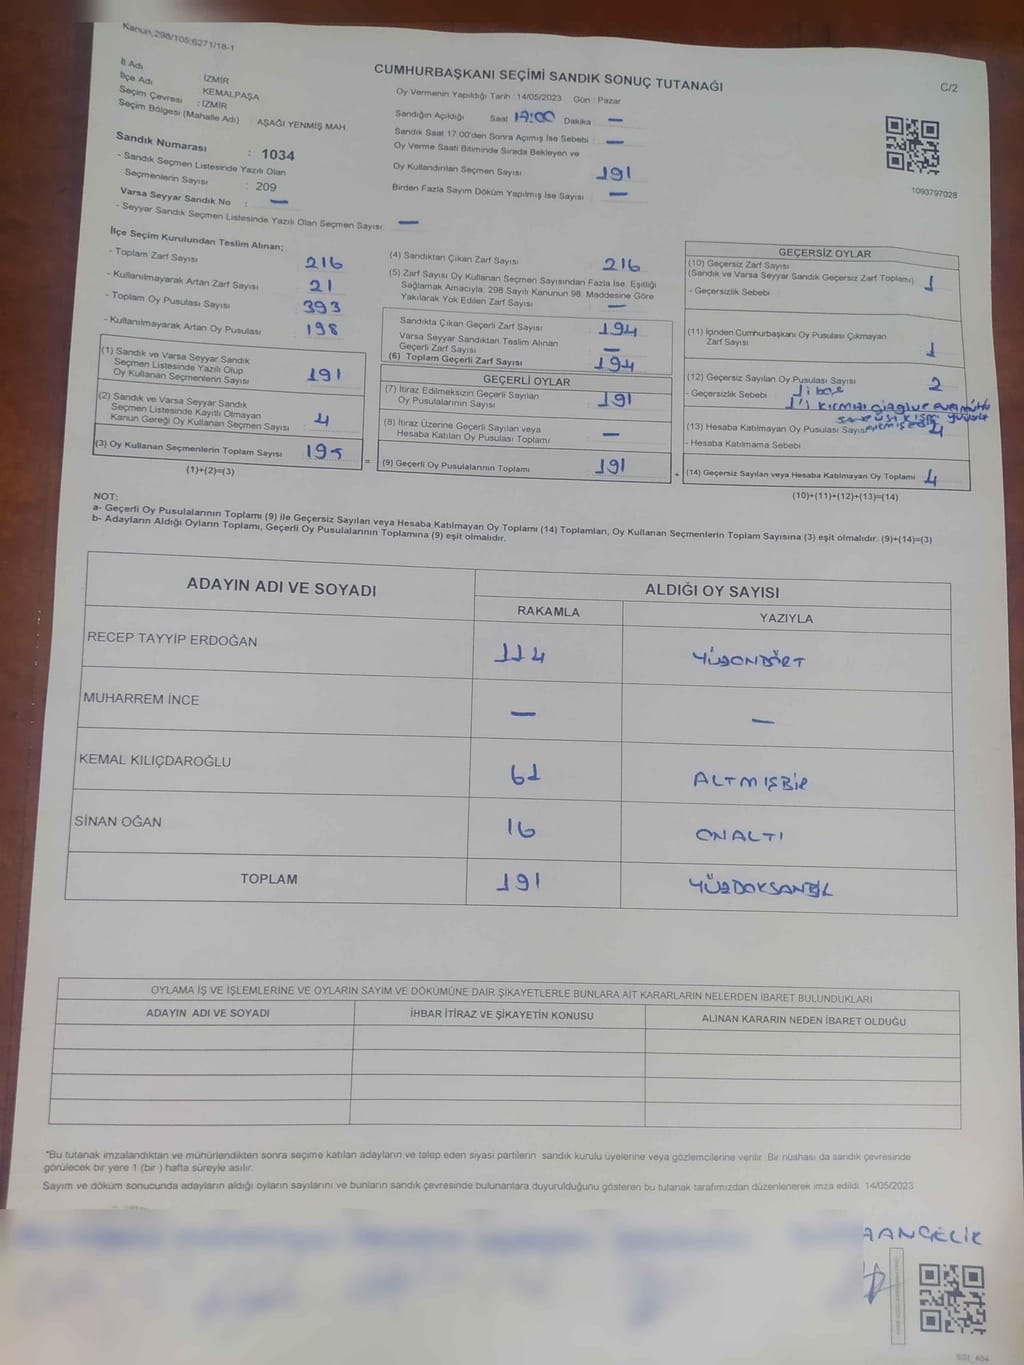 Kanun,298/105;6271/18-1
CUMHURBAŞKANI SEÇİMİ SANDIK SONUÇ TUTANAĞI
C/2
İl Adı : İZMİR
İlçe Adı : KEMALPAŞA
Seçim Çevresi : İZMİR
Seçim Bölgesi (Mahalle Adı) AŞAĞI YENMİŞ MAH.
Sandık Numarası : 1034
- Sandık Seçmen Listesinde Yazılı Olan
Seçmenlerin Sayısı : 209
Varsa Seyyar Sandık No : —
- Seyyar Sandık Seçmen Listesinde Yazılı Olan Seçmen Sayısı: —
Oy Vermenin Yapıldığı Tarih :14/05/2023 Gün : Pazar
Sandığın Açıldığı Saat 17:00 Dakika : —
Sandık Saat 17:00'den Sonra Açılmış İse Sebebi : —
Oy Verme Saati Bitiminde Sırada Bekleyen ve
Oy Kullandırılan Seçmen Sayısı : 191
Birden Fazla Sayım Döküm Yapılmış İse Sayısı : —
1093797028
İlçe Seçim Kurulundan Teslim Alınan;
- Toplam Zarf Sayısı : 216
- Kullanılmayarak Artan Zarf Sayısı : 21
- Toplam Oy Pusulası Sayısı : 393
- Kullanılmayarak Artan Oy Pusulası : 198
(1) Sandık ve Varsa Seyyar Sandık
Seçmen Listesinde Yazılı Olup
Oy Kullanan Seçmenlerin Sayısı : 191
(2) Sandık ve Varsa Seyyar Sandık
Seçmen Listesinde Kayıtlı Olmayan
Kanun Gereği Oy Kullanan Seçmen Sayısı : 4
(3) Oy Kullanan Seçmenlerin Toplam Sayısı : 195
(1)+(2)=(3)
(4) Sandıktan Çıkan Zarf Sayısı : 216
(5) Zarf Sayısı Oy Kullanan Seçmen Sayısından Fazla İse, Eşitliği
Sağlamak Amacıyla; 298 Sayılı Kanunun 98. Maddesine Göre
Yakılarak Yok Edilen Zarf Sayısı : —
Sandıkta Çıkan Geçerli Zarf Sayısı : 194
Varsa Seyyar Sandıktan Teslim Alınan
Geçerli Zarf Sayısı : —
(6) Toplam Geçerli Zarf Sayısı : 194
GEÇERLİ OYLAR
(7) İtiraz Edilmeksizin Geçerli Sayılan
Oy Pusulalarının Sayısı : 191
(8) İtiraz Üzerine Geçerli Sayılan veya
Hesaba Katılan Oy Pusulası Toplamı : —
= (9) Geçerli Oy Pusulalarının Toplamı : 191
GEÇERSİZ OYLAR
(10) Geçersiz Zarf Sayısı
(Sandık ve Varsa Seyyar Sandık Geçersiz Zarf Toplamı) : 1
- Geçersizlik Sebebi :
(11) İçinden Cumhurbaşkanı Oy Pusulası Çıkmayan
Zarf Sayısı : 1
(12) Geçersiz Sayılan Oy Pusulası Sayısı : 2
- Geçersizlik Sebebi : 1'i boş
1'i KIRMIZI
(13) Hesaba Katılmayan Oy Pusulası Sayısı 4
- Hesaba Katılmama Sebebi :
+ (14) Geçersiz Sayılan veya Hesaba Katılmayan Oy Toplamı : 4
(10)+(11)+(12)+(13)=(14)
NOT:
a- Geçerli Oy Pusulalarının Toplamı (9) ile Geçersiz Sayılan veya Hesaba Katılmayan Oy Toplamı (14) Toplamları, Oy Kullanan Seçmenlerin Toplam Sayısına (3) eşit olmalıdır. (9)+(14)=(3)
b- Adayların Aldığı Oyların Toplamı, Geçerli Oy Pusulalarının Toplamına (9) eşit olmalıdır.
ADAYIN ADI VE SOYADI ALDIĞI OY SAYISI
RAKAMLA YAZIYLA
RECEP TAYYİP ERDOĞAN 114 YÜZONDÖRT
MUHARREM İNCE — —
KEMAL KILIÇDAROĞLU 61 ALTMIŞBİR
SİNAN OĞAN 16 ONALTI
TOPLAM 191 YÜZDOKSANBİR
OYLAMA İŞ VE İŞLEMLERİNE VE OYLARIN SAYIM VE DÖKÜMÜNE DAİR ŞİKAYETLERLE BUNLARA AİT KARARLARIN NELERDEN İBARET BULUNDUKLARI
ADAYIN ADI VE SOYADI İHBAR İTİRAZ VE ŞİKAYETİN KONUSU ALINAN KARARIN NEDEN İBARET OLDUĞU
"Bu tutanak imzalandıktan ve mühürlendikten sonra seçime katılan adayların ve talep eden siyasi partilerin sandık kurulu üyelerine veya gözlemcilerine verilir. Bir nüshası da sandık çevresinde
görülecek bir yere 1 (bir ) hafta süreyle asılır.
Sayım ve döküm sonucunda adayların aldığı oyların sayılarını ve bunların sandık çevresinde bulunanlara duyurulduğunu gösteren bu tutanak tarafımızdan düzenlenerek imza edildi. 14/05/2023
AANÇELİK